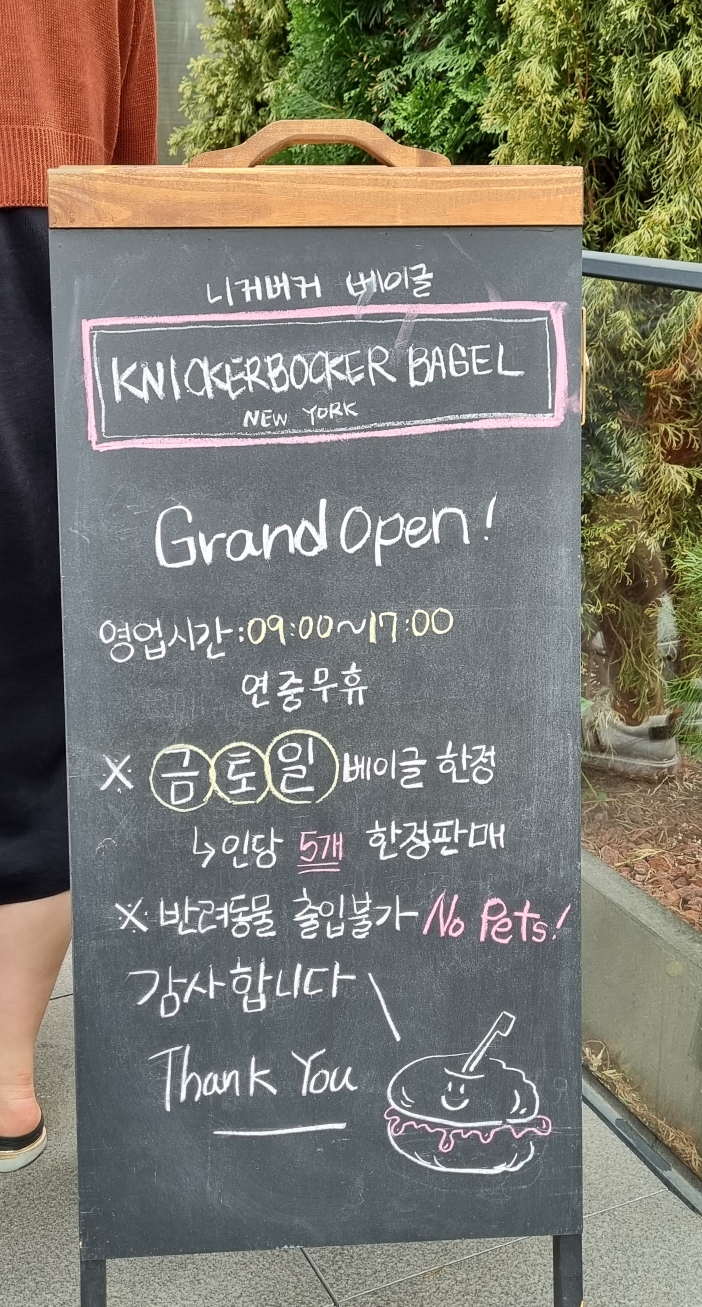 니커버커 베이글
KNICKERBOCKER BAGEL
NEW YORK
Grand Open!
영업시간:09:00~17:00
연중무휴
※ 금 토 일 베이글 한정
↳인당 5개 한정판매
※ 반려동물 출입불가 No Pets!
감사합니다
Thank You